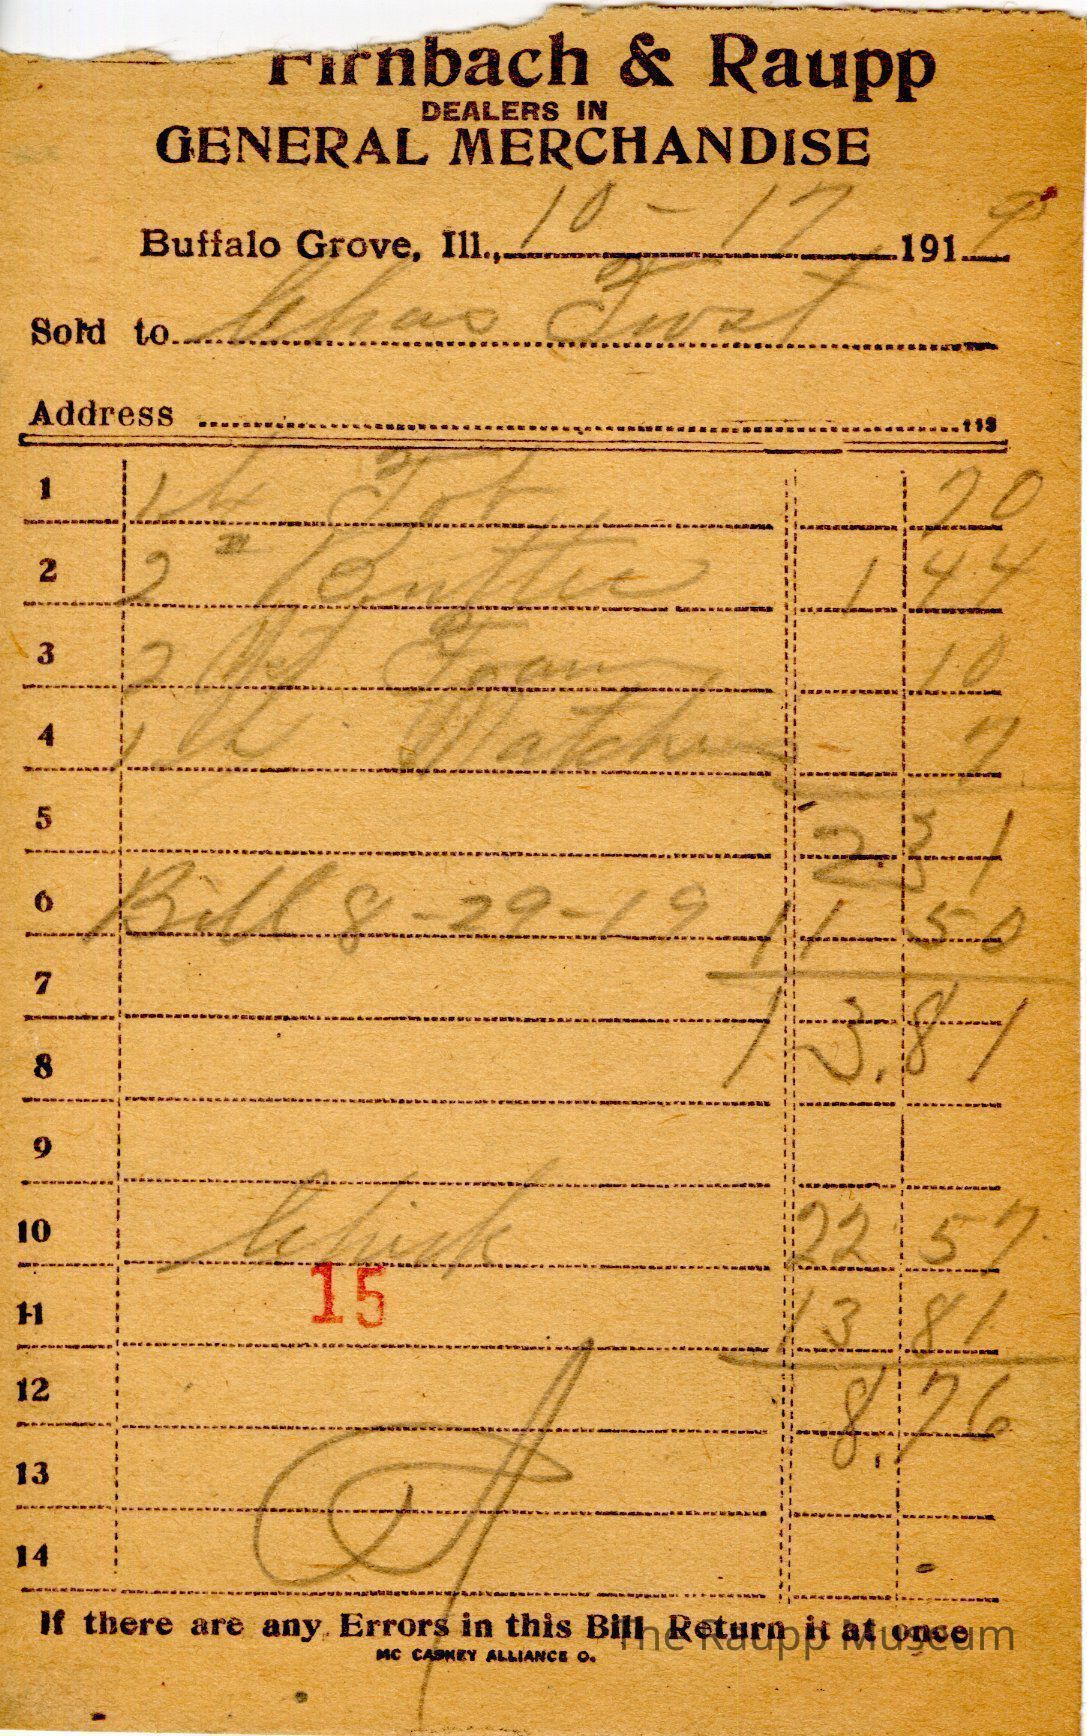 Firnbach & Raupp
DEALERS IN
GENERAL MERCHANDISE
Buffalo Grove, Ill., 10 - 17 1919
Sold to Chas
Address
1 1 70
2 2 # Butter 1 44
3 2 10
4 1 Matches 7
5 2 31
6 Bill 8-29-19 11 50
7 13.81
8
9
10 Chick 22 57
15
11 13 81
12 8.76
13
14
If there are any Errors in this Bill Return it at once
MC CASKEY ALLIANCE O.
The Raupp Museum